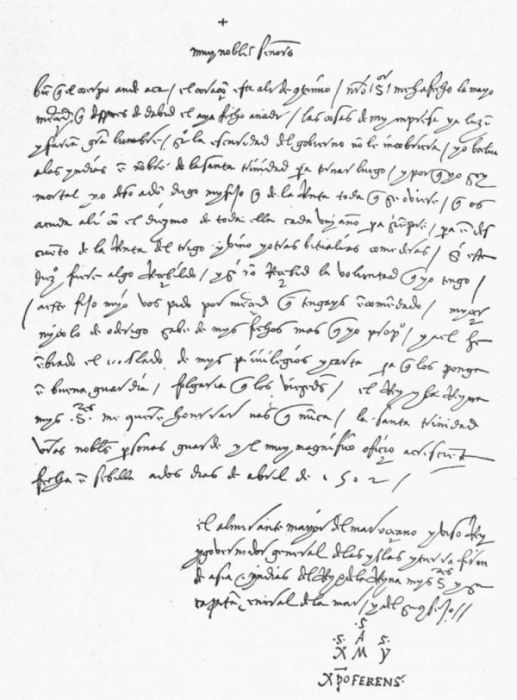 +
muy nobles señores
bien q el cuerpo ande aca / el coraço esta ali de cotinuo / nro sor me ha fecho la mayor
merçed q despues de dabid el aya fecho a nadi / las cosas de my inpresa ya luzen
y farian gra lumbre / si la escuridad del gobierno no le incobriera / yo boelvo
a las yndias e nobre de la santa trinidad pa tornar luego / y porq yo soy
mortal yo dexo a do diego my fijo q de la renta toda q se oviere q os
acuda ali co el diezmo de toda ella cada un año pa sienpre / pa e des
cuento de la renta del trigo y vino y otras bitualias comederas / si este
diezo fuere algo recebildo / y si no recebid la voluntad q yo tengo /
/ a este fijo myo vos pido por merçed q tengays encomendado / miçer
nicolo de oderigo sabe de mys fechos mas q yo propo / y a el he
enbiado el traslado de mys privilegios y carta pa q los ponga
e buena guardia / folgaria q los viesedes / el Rey y la Reyna
mys Sres me quieren honrrar mas q nuca / la santa trinidad
vras nobles personas guarde y el muy magnifico ofiçio acresciente
fecha e sebilla a dos dias de abril de 1502 /
el almirante mayor del mar oceano y viso Rey
y governador general de las yslas y tierra firme
de asia e yndias del Rey e de la Reyna mys Sres y su
capitan general de la mar / y del su consejo //
.S.
.S. A S.
X M Y
Xpo FERENS.